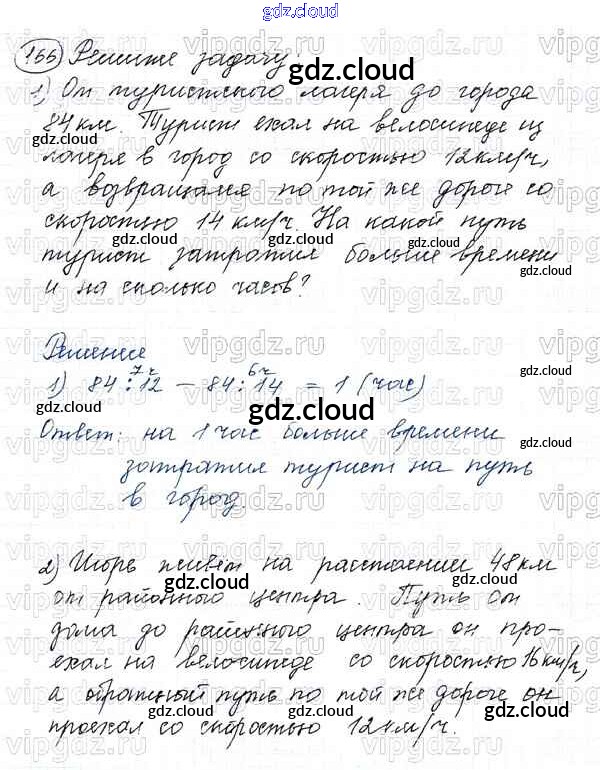 gdz.cloud
166) Решите задачу:
1) От туристского лагеря до города
84 км. Турист ехал на велосипеде из
лагеря в город со скоростью 12 км/ч,
а возвращался по той же дороге со
скоростью 14 км/ч. На какой путь
турист затратил больше времени
и на сколько часов?
Решение
7ч 6ч
1) 84:12 – 84:14 = 1 (час)
Ответ: на 1 час больше времени
затратил турист на путь
в город.
2) Игорь живёт на расстоянии 48 км
от районного центра. Путь от
дома до районного центра он про-
ехал на велосипеде со скоростью 16 км/ч,
а обратный путь по той же дороге он
проехал со скоростью 12 км/ч.
gdz.cloud
vipgdz.ru